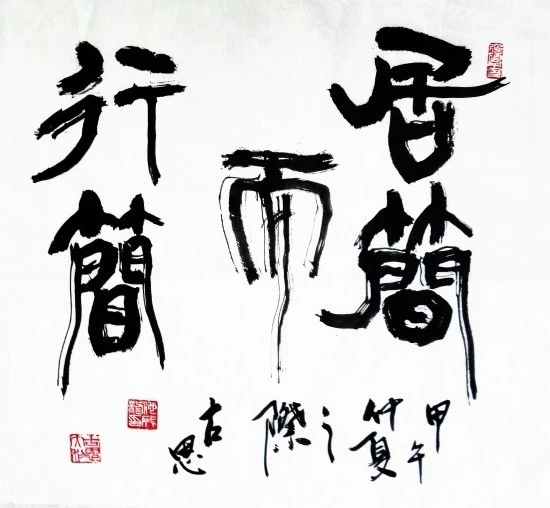 居簡
而
行簡
甲午
仲夏
之
際
古
思